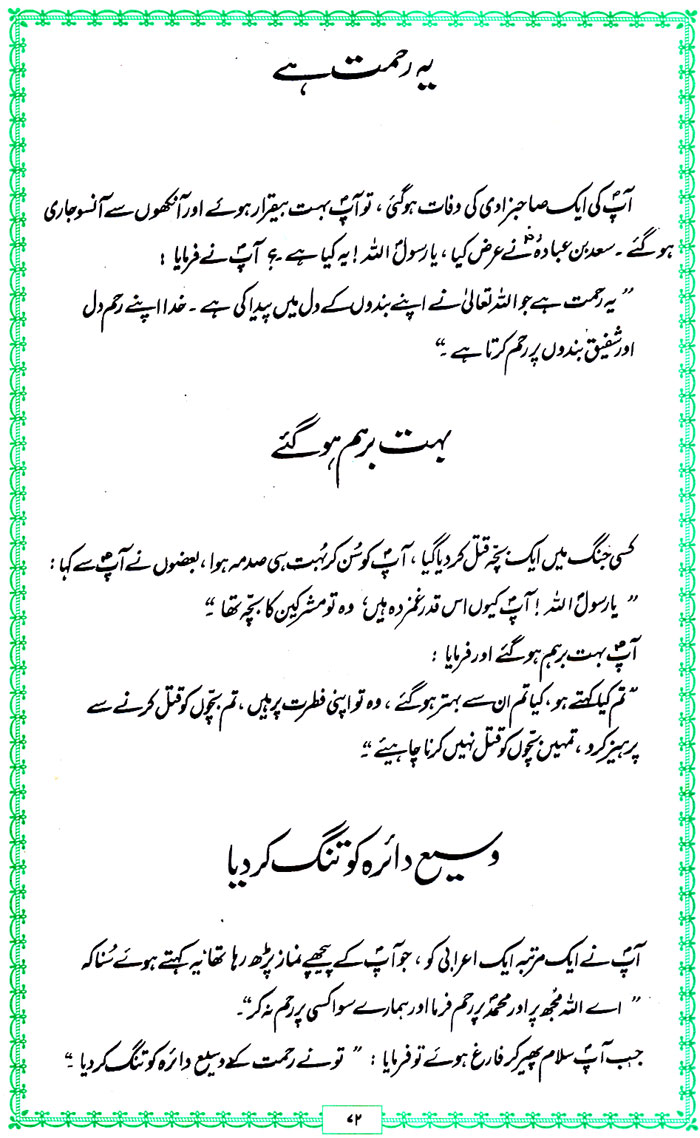 یہ رحمت ہے
آپؐ کی ایک صاحبزادی کی وفات ہوگئی، تو آپؐ بہت بیقرار ہوئے اور آنکھوں سے آنسو جاری
ہوگئے۔ سعد بن عبادہؓ نے عرض کیا، یا رسولؐ اللہ! یہ کیا ہے؟ آپؐ نے فرمایا:
”یہ رحمت ہے جو اللہ تعالیٰ نے اپنے بندوں کے دل میں پیدا کی ہے۔ خدا اپنے رحم دل
اور شفیق بندوں پر رحم کرتا ہے۔“
بہت برہم ہوگئے
کسی جنگ میں ایک بچّہ قتل کر دیا گیا، آپؐ کو سُن کر بُہت ہی صدمہ ہوا، بعضوں نے آپؐ سے کہا:
”یا رسولؐ اللہ! آپؐ کیوں اس قدر غمزدہ ہیں، وہ تو مشرکین کا بچّہ تھا۔“
آپؐ بہت برہم ہوگئے اور فرمایا:
”تم کیا کہتے ہو، کیا تم ان سے بہتر ہوگئے، وہ تو اپنی فطرت پر ہیں، تم بچّوں کو قتل کرنے سے
پرہیز کرو، تمہیں بچّوں کو قتل نہیں کرنا چاہیئے۔“
وسیع دائرہ کو تنگ کر دیا
آپؐ نے ایک مرتبہ ایک اعرابی کو، جو آپؐ کے پیچھے نماز پڑھ رہا تھا یہ کہتے ہوئے سُنا کہ
”اے اللہ مُجھ پر اور محمدؐ پر رحم فرما اور ہمارے سوا کسی پر رحم نہ کر“۔
جب آپؐ سلام پھیر کر فارغ ہوئے تو فرمایا: ”تو نے رحمت کے وسیع دائرہ کو تنگ کر دیا۔“
۷۲